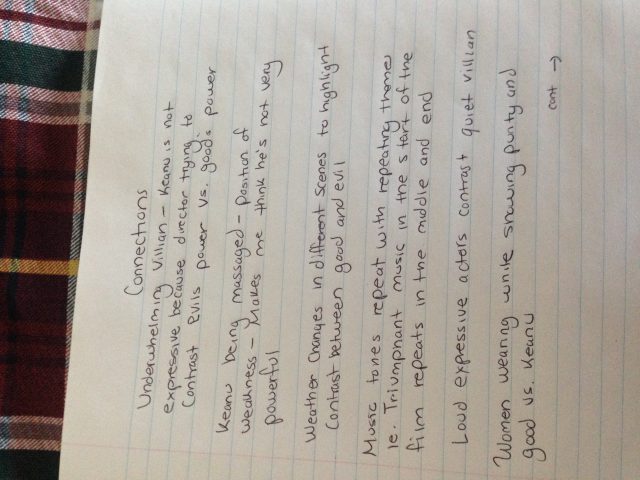 Connections
Underwhelming villian - Keanu is not
expressive because director trying to
contrast evils power vs. goods power
Keanu being massaged - position of
weakness - Makes me think he's not very
powerful
Weather changes in different scenes to highlight
contrast between good and evil
Music tones repeat with repeating themes
Ie. Triumphant music in the start of the
film repeats in the middle and end
Loud expressive actors contrast quiet villian
Women wearing white showing purity and
good vs. Keanu
cont →